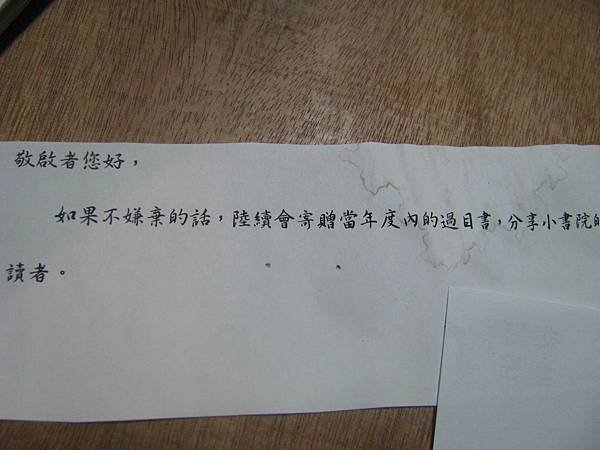 敬啟者您好，
如果不嫌棄的話，陸續會寄贈當年度內的過目書，分享小書院的
讀者。